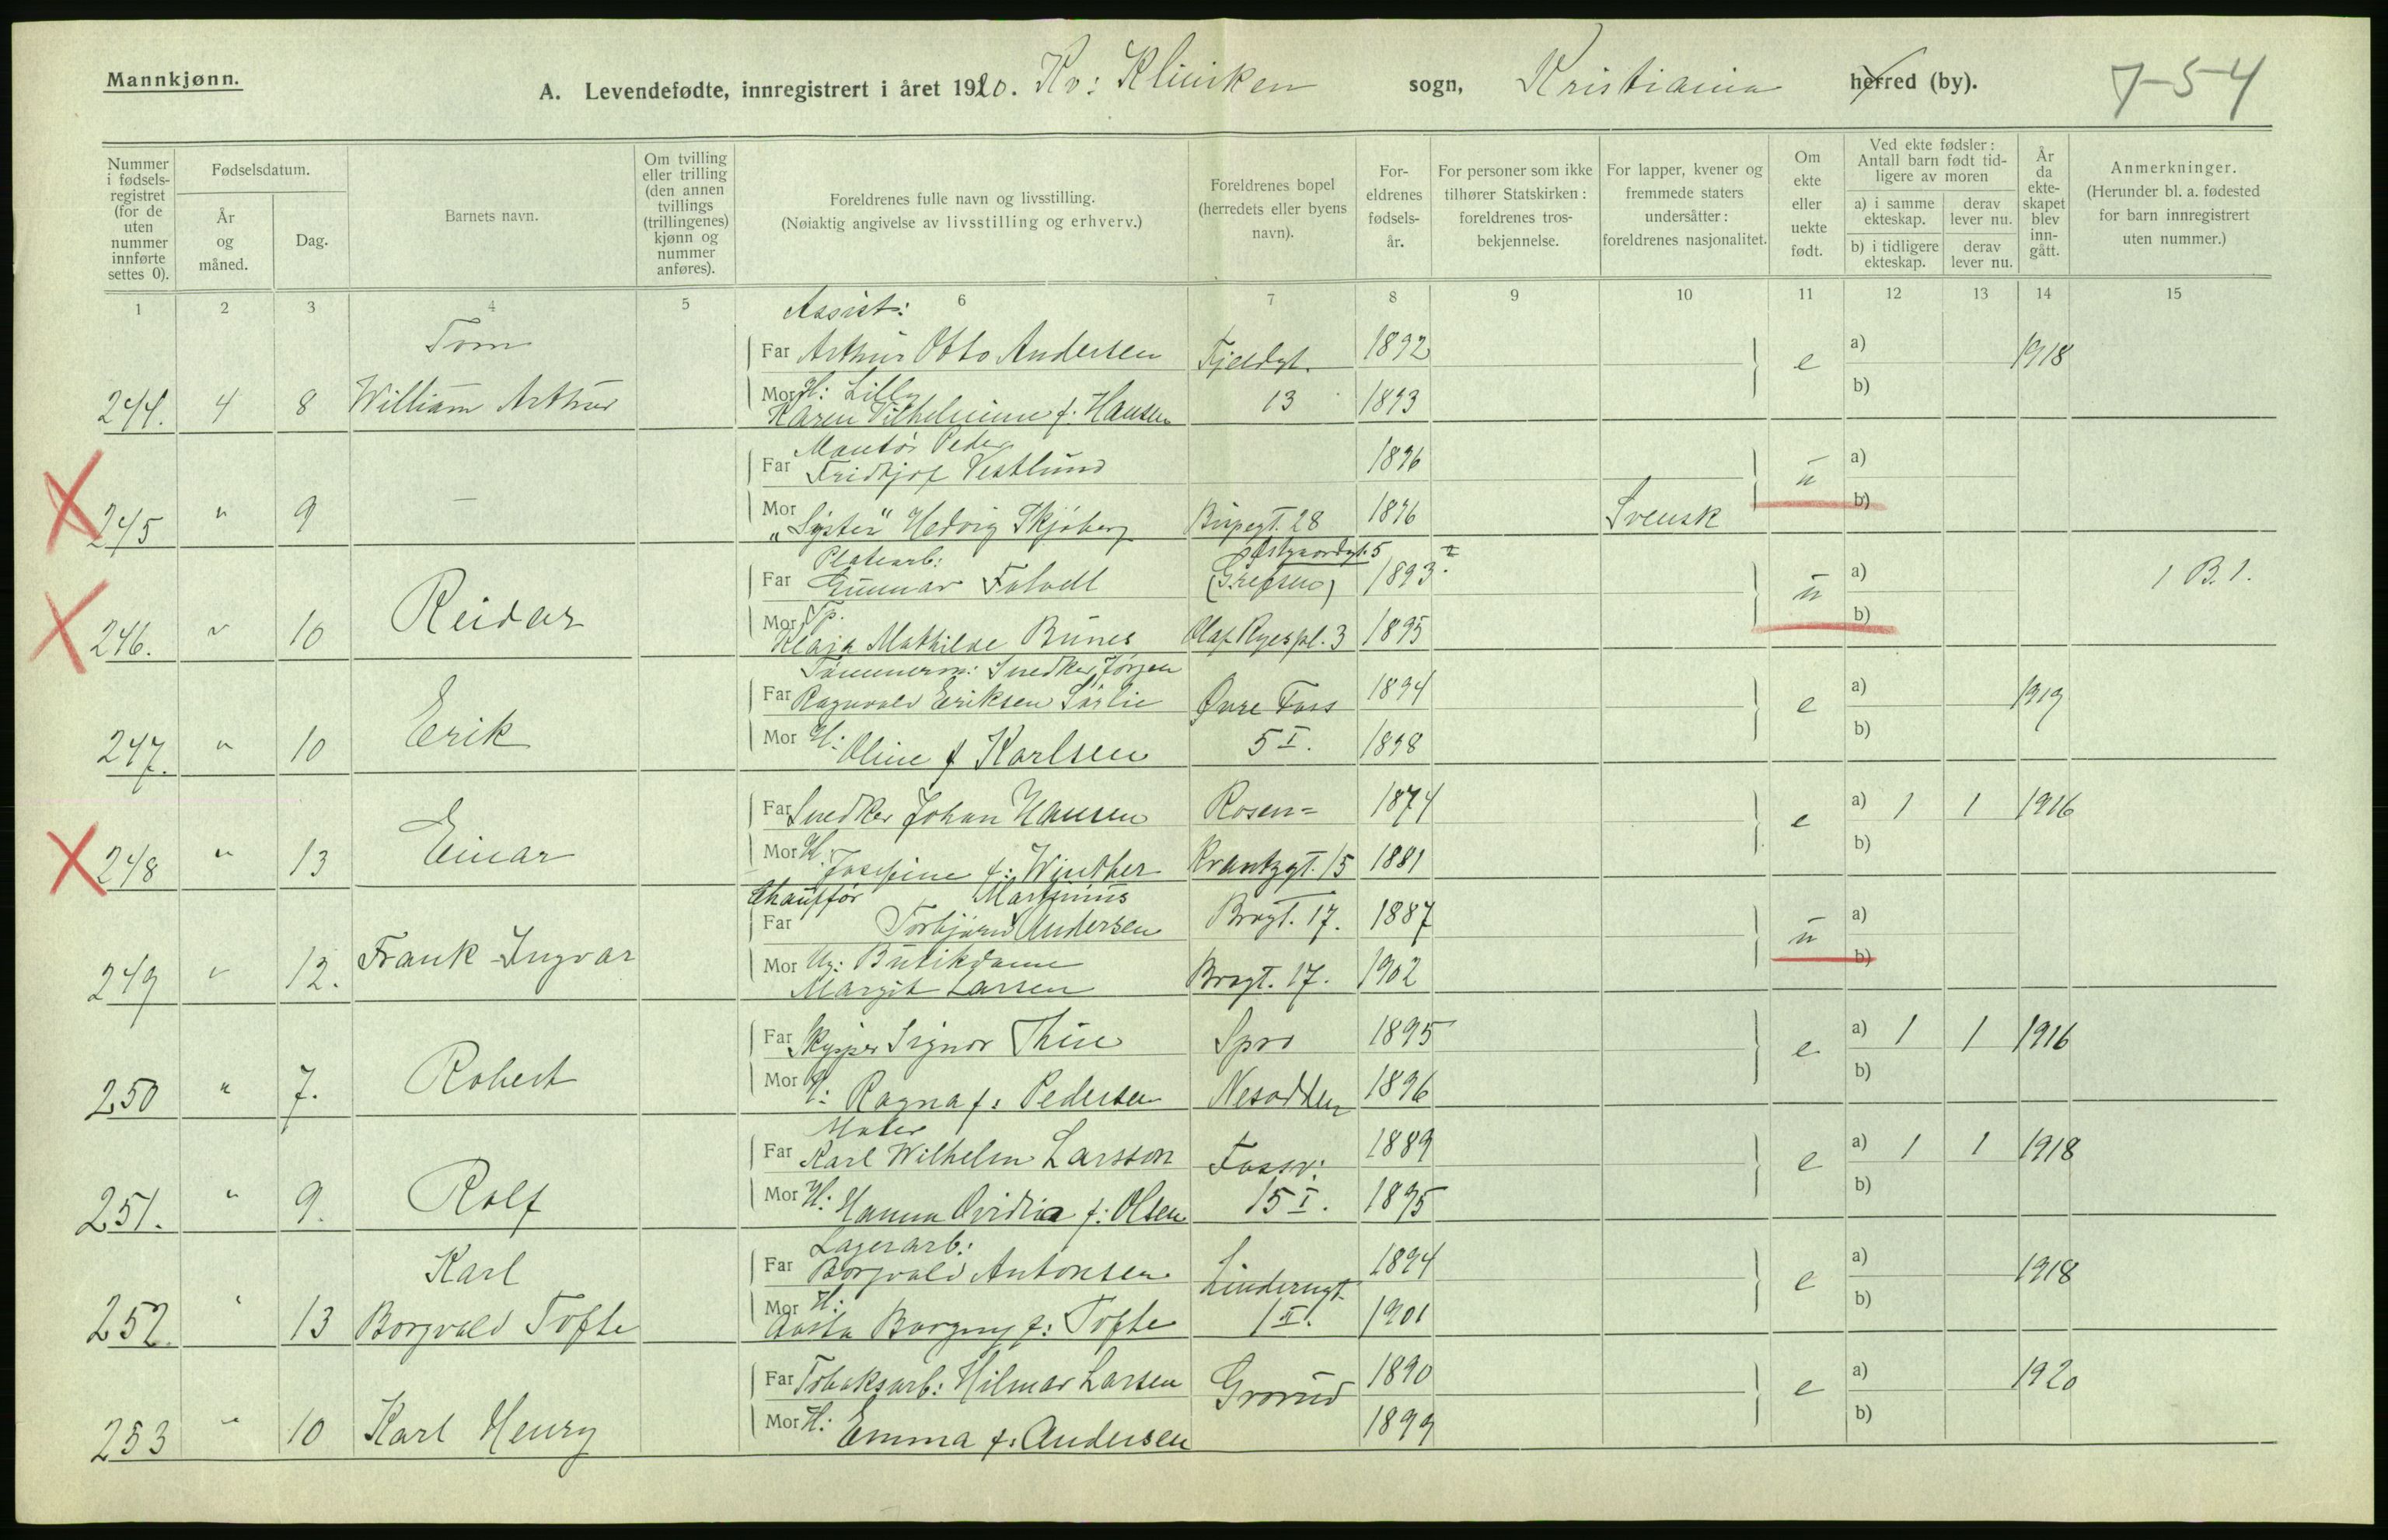 Mannkjønn.
A. Levendefødte, innregistrert i året 1920. Kv: Kliniken sogn, Kristiania herred (by). 7-54
Nummer i fødsels-registret (for de uten nummer innførte settes 0).
Fødselsdatum.
År og måned.
Dag.
Barnets navn.
Om tvilling eller trilling (den annen tvillings (trillingenes) kjønn og nummer anføres).
Foreldrenes fulle navn og livsstilling.
(Nøiaktig angivelse av livsstilling og erhverv.)
Foreldrenes bopel (herredets eller byens navn).
For-eldrenes fødsels-år.
For personer som ikke tilhører Statskirken: foreldrenes tros-bekjennelse.
For lapper, kvener og fremmede staters undersåtter: foreldrenes nasjonalitet.
Om ekte eller uekte født.
Ved ekte fødsler: Antall barn født tid-ligere av moren
a) i samme ekteskap.
derav lever nu.
b) i tidligere ekteskap.
derav lever nu.
År da ekte-skapet blev inn-gått.
Anmerkninger.
(Herunder bl. a. fødested for barn innregistrert uten nummer.)
1 2 3 4 5 6 7 8 9 10 11 12 13 14 15
Assist:
Tom
Far Arthur Otto Andersen Fjeldgt. 1892 e a) 1918
244. 4 8 William Arthur
Mor H: Lilly
Karen Vilhelmine f. Hansen 13 1893 b)
Montør Peder
Far Fridtjof Vestlund 1896 u a)
245 " 9 —
Mor "Syster" Hedvig Skjöberg Birpegt. 28 1896 Svensk b)
Platearb: Østgaardgt. 5
Far Gunnar Folvell (Grefsen) 1893 ? u a) 1 B. 1.
246. " 10 Reidar
Mor Tp.
Klara Mathilde Bunes Olaf Ryes pl. 3 1895 b)
Tømmerm: Snedker Jörgen
Far Ragnvald Eriksen Sörlie Øvre Foss 1894 e a) 1919
247. " 10 Erik
Mor H: Oline f Karlsen 5 I. 1898 b)
Far Snedker Johan Hansen Rosen= 1874 e a) 1 1 1916
248 " 13 Einar
Mor H: Josefine f: Winther Krantzgt. 15 1881 b)
Chauffør Martinius
Far Torbjørn Andersen Brogt. 17. 1887 u a)
249 " 12. Frank Ingvar
Mor Ug: Butikdame
Margit Larsen Brogt. 17. 1902 b)
Far Skipper Signor Thue Spro 1895 e a) 1 1 1916
250 " 7. Robert
Mor H: Ragna f: Pedersen Nesodden 1896 b)
Maler
Far Karl Wilhelm Larsson Fossv: 1889 e a) 1 1 1918
251. " 9. Rolf
Mor H: Hanna Ovidia f: Olsen 15 I. 1895 b)
Lagerarb:
Karl
Far Borgvald Antonsen Linderngt 1894 e a) 1918
252. " 13 Borgvald Tofte
Mor H:
Aasta Borgny f: Tofte 1 II. 1901 b)
Far Tobaksarb: Hilmar Larsen Grorud 1890 e a) 1920
253 " 10 Karl Henry
Mor H: Emma f: Andersen 1899 b)